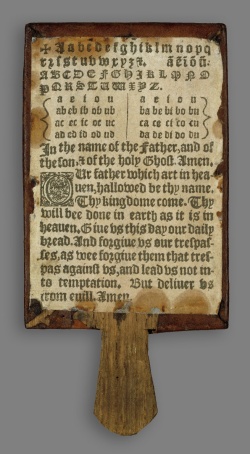 ✠ A a b c d e f g h i k l m n o p q
r ꝛ ſ s t u v w x y z ꝫ. a e i o u
A B C D E F G H I K L M N O
P Q R S T U W X Y Z.
a e i o u | a e i o u
ab eb ib ob ub | ba be bi bo bu
ac ec ic oc uc | ca ce ci co cu
ad ed id od ud | da de di do du
In the name of the Father, and of
the Son, & of the holy Ghoſt. Amen.
OUr father which art in hea
uen, hallowed be thy name.
Thy kingdome come. Thy
will bee done in earth as it is in
heauen. Giue vs this day our daily
bread. And forgiue vs our treſpaſ-
ſes, as wee forgiue them that treſ-
pas againſt vs, and lead vs not in-
to temptation, But deliuer vs
from euill. Amen.